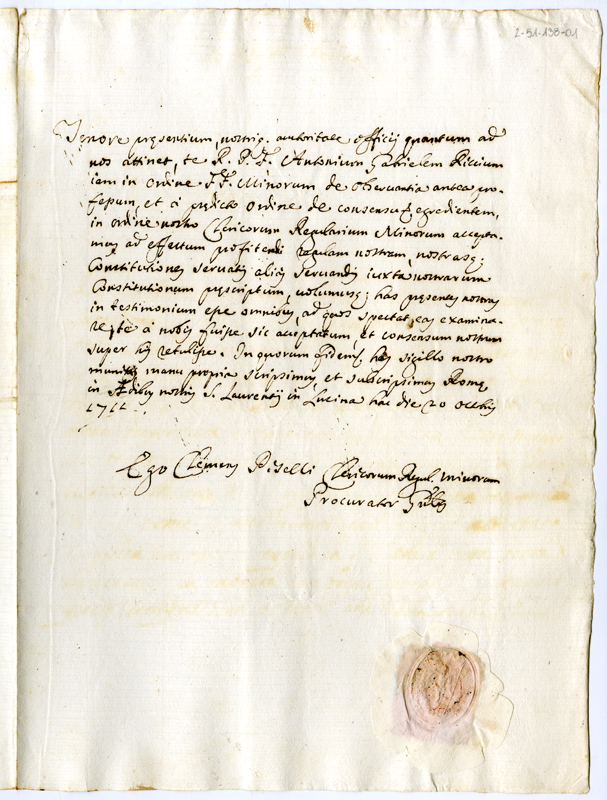 2-51-138-01
Tenore pręsentium, nostriq. autoritate officij quantum ad
nos attinet, te R. P. F. Antonium Gabrielem Riccium
iam in ordine FF. Minorum de Obseruantia antea pro-
fessum, et à prędicto ordine de consensu egredientem,
in ordine nostro Clericorum Regularium Minorum accepta-
mus ad effectum profitendi regulam nostram, nostrasq;
Constitutiones seruatis alijs seruandis iuxta nostrarum
Constitutionum pręscriptum, uolumusq; has pręsentes nostras
in testimonium esse omnibus, ad quos spectat, eas examina-
re, te à nobis fuisse sic acceptatum, et consensum nostrum
super his retulisse. In quorum fidem has sigillo nostro
munitas manu propria scripsimus, et subscripsimus Romę
in Ędibus nostris S. Laurentij in Lucina hac die 20 Octbris
Ego Clemens Piselli Clericorum Regul. Minorum
Procurator Gnlis